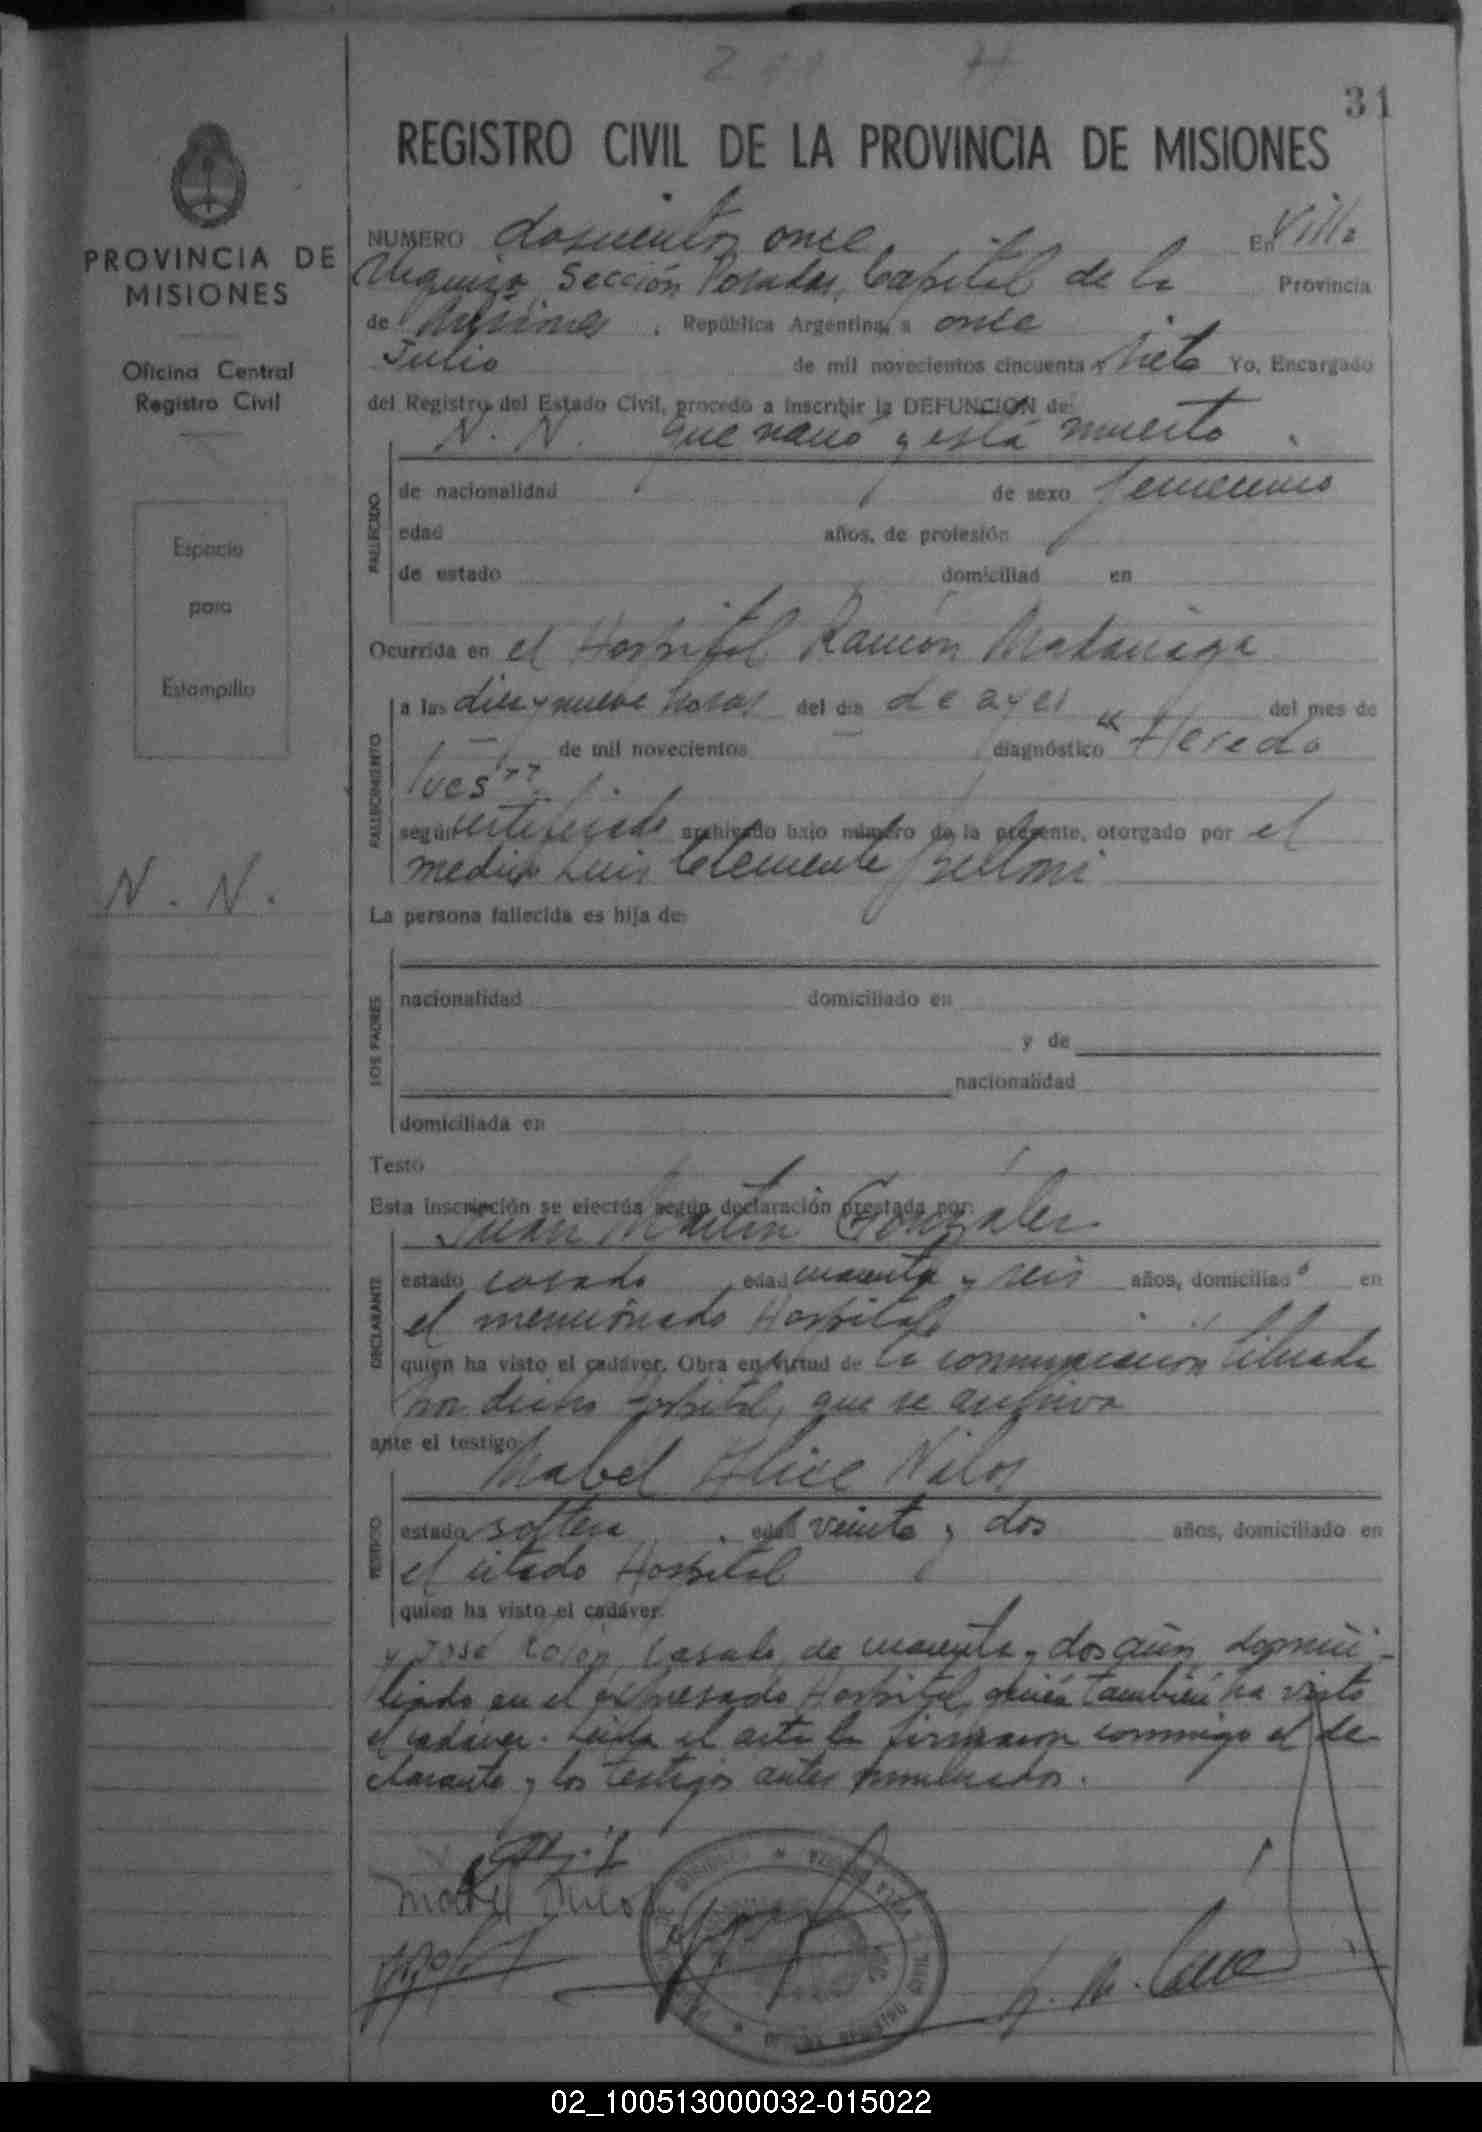 31
REGISTRO CIVIL DE LA PROVINCIA DE MISIONES
PROVINCIA DE
MISIONES
Oficina Central
Registro Civil
Espacio
para
Estampilla
N. N.
NUMERO doscientos once. En Villa
Urquiza, Sección Posadas, Capital de la Provincia
de Misiones, República Argentina, a once
Julio de mil novecientos cincuenta y siete Yo, Encargado
del Registro del Estado Civil, procedo a inscribir la DEFUNCION de:
N. N. que nació y está muerto.
FALLECIDO
de nacionalidad de sexo femenino
edad años, de profesión
de estado domiciliad en
Ocurrida en el Hospital Ramón Madariaga
FALLECIMIENTO
a las diez y nueve horas del día de ayer del mes de
de mil novecientos diagnóstico "Heredo
lues"
según certificado archivado bajo número de la presente, otorgado por el
medico Luis Clemente Belloni
La persona fallecida es hija de:
LOS PADRES
nacionalidad domiciliado en
y de
nacionalidad
domiciliada en
Testó
Esta inscripción se efectúa según declaración prestada por:
Juan Martín González
DECLARANTE
estado casado, edad cuarenta y seis años, domiciliado en
el mencionado Hospital
quien ha visto el cadáver. Obra en virtud de la comunicación librada
por dicho Hospital, que se archiva
ante el testigo:
Mabel Alice Nilos
TESTIGO
estado soltera, edad veinte y dos años, domiciliado en
el citado Hospital
quien ha visto el cadáver.
y José casado, de cuarenta y dos años domici-
liado en el expresado Hospital, quien también ha visto
el cadáver. Leída el acta la firmaron conmigo el de-
clarante y los testigos antes nombrados.
02_100513000032-015022